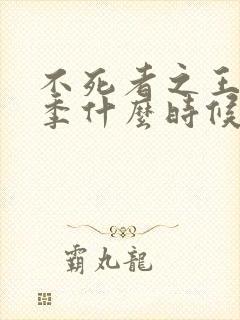 不死者之王
季什麼時候
霸丸龍